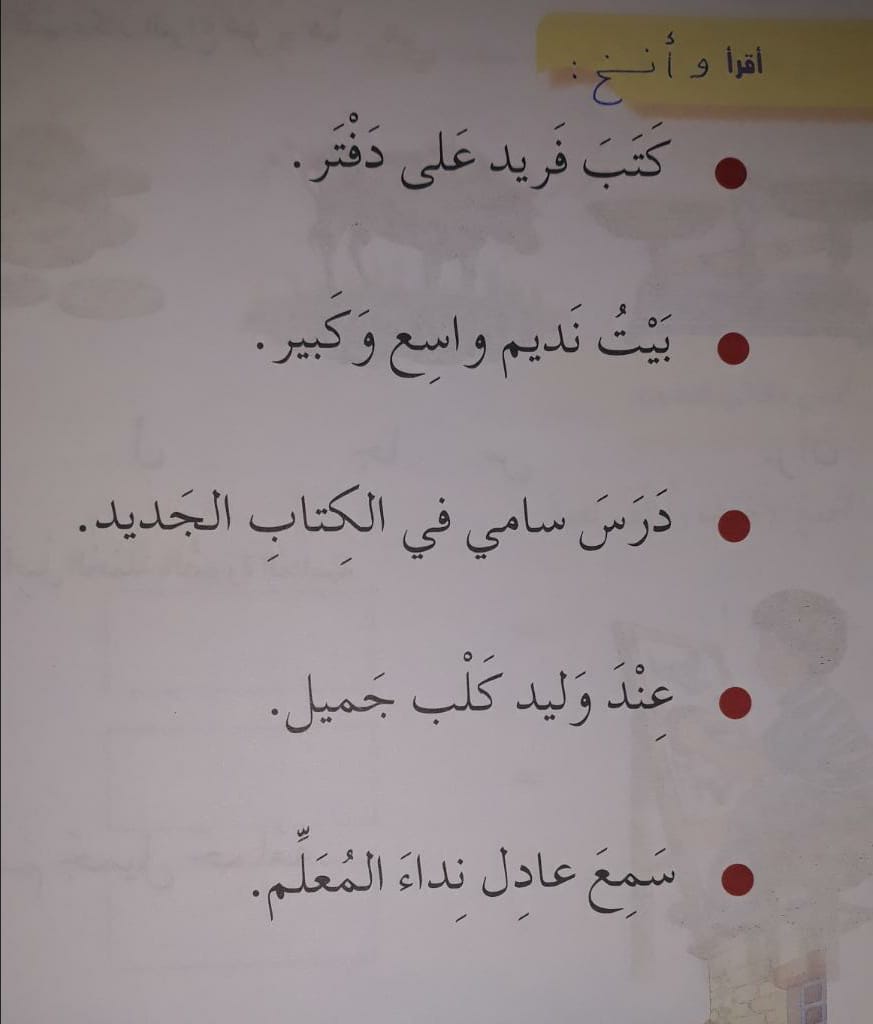 أقرأ و أنسخ :
كَتَبَ فَريد عَلى دَفْتَر .
بَيْتُ نَديم واسِع وَكَبير .
دَرَسَ سامي في الكِتابِ الجَديد .
عِنْدَ وَليد كَلْب جَميل .
سَمِعَ عادِل نِداءَ المُعَلِّم .